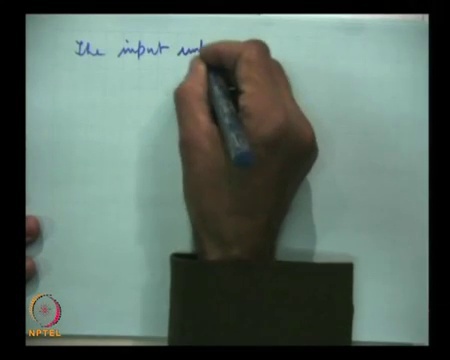 The input
NPTEL